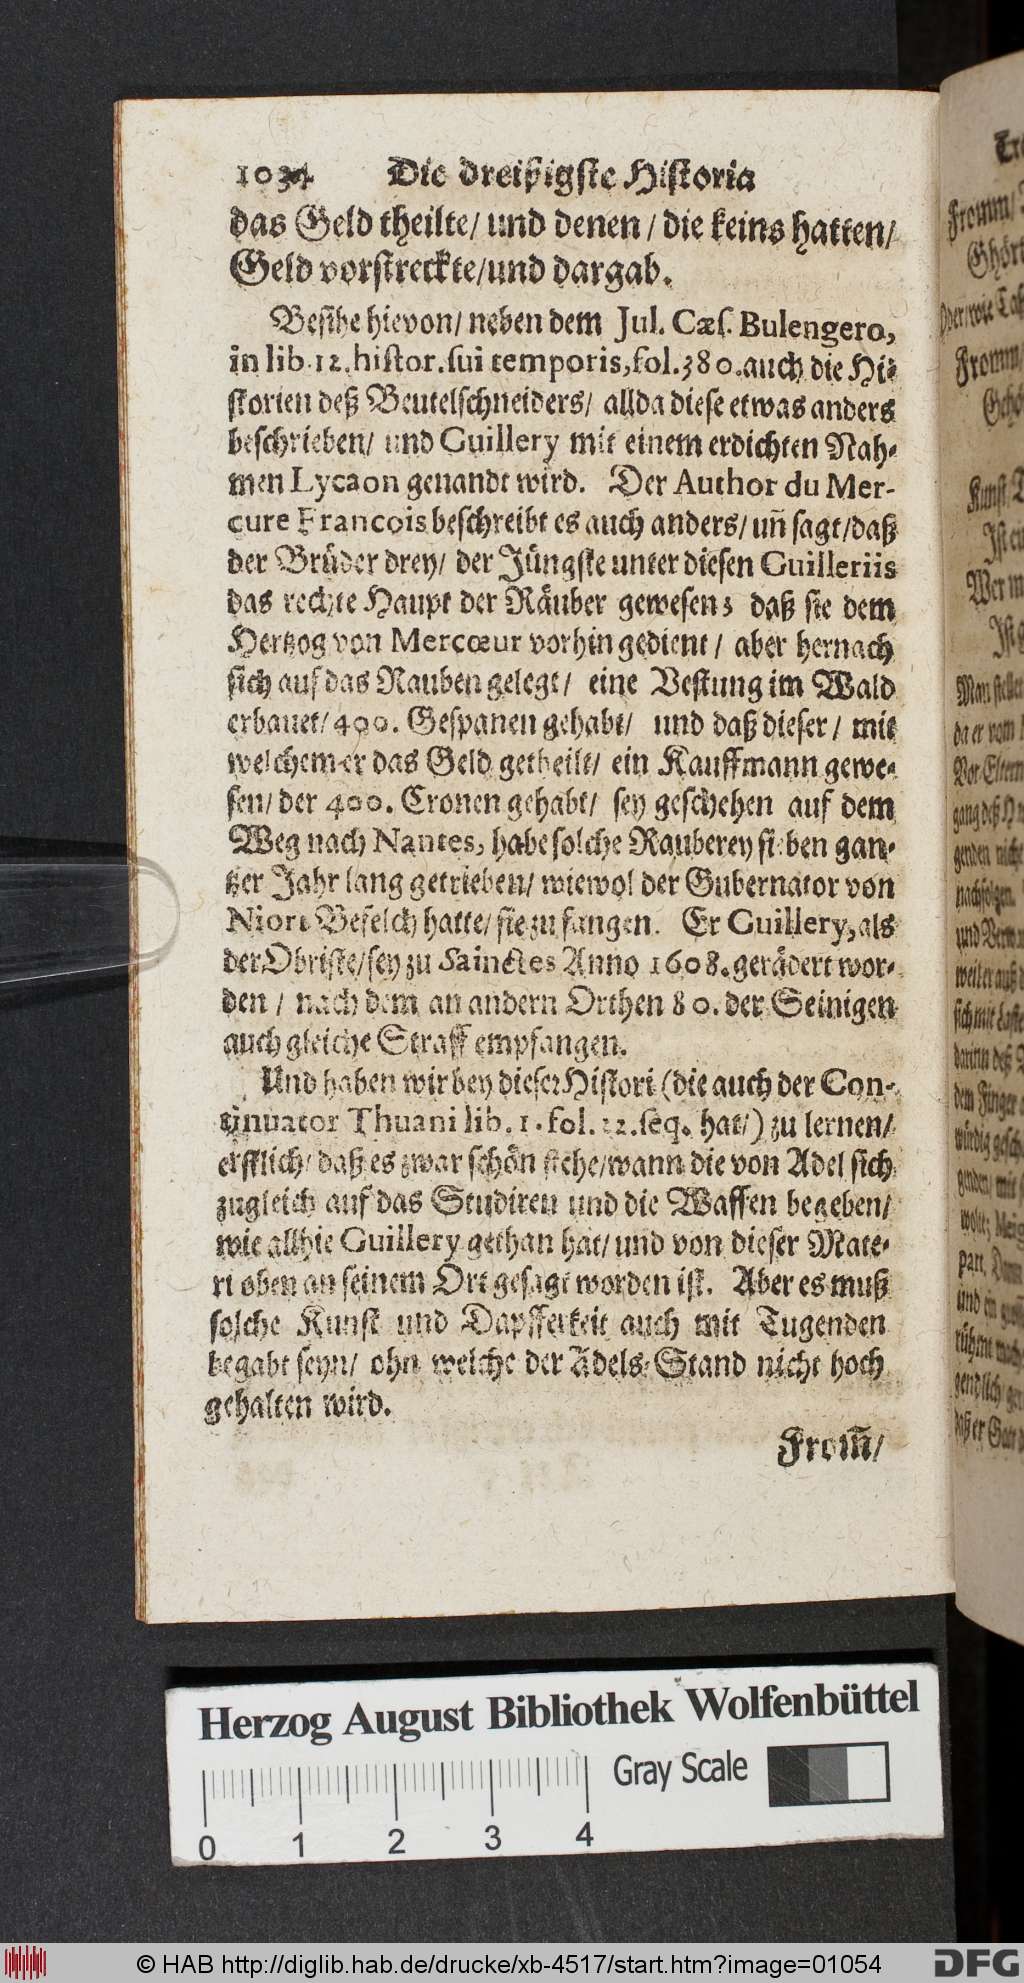 1034 Die dreißigste Historia
das Geld theilte/ und denen / die keins hatten/
Geld vorstreckte/und dargab.
Besihe hievon/ neben dem Jul. Cæs. Bulengero,
in lib. 12. histor. sui temporis, fol. 380. auch die Hi-
storien deß Beutelschneiders/ allda diese etwas anders
beschrieben/ und Guillery mit einem erdichten Nah-
men Lycaon genandt wird. Der Author du Mer-
cure Francois beschreibt es auch anders/ uñ sagt/daß
der Brüder drey/ der Jüngste unter diesen Guilleriis
das rechte Haupt der Räuber gewesen; daß sie dem
Hertzog von Mercœur vorhin gedient / aber hernach
sich auf das Rauben gelegt/ eine Vestung im Wald
erbauet/ 400. Gespanen gehabt/ und daß dieser / mit
welchem er das Geld getheilt/ ein Kauffmann gewe-
sen/ der 400. Cronen gehabt/ sey geschehen auf dem
Weg nach Nantes, habe solche Rauberey sieben gan-
tzer Jahr lang getrieben/ wiewol der Gubernator von
Niort Befelch hatte/ sie zu fangen. Er Guillery, als
der Obriste/ sey zu Sainctes Anno 1608. gerädert wor-
den / nach dem an andern Orthen 80. der Seinigen
auch gleiche Straff empfangen.
Und haben wir bey dieser Histori (die auch der Con-
tinuator Thuani lib. 1. fol. 12. seq. hat/) zu lernen/
erstlich/ daß es zwar schön stehe/wann die von Adel sich
zugleich auf das Studiren und die Waffen begeben/
wie allhie Guillery gethan hat/ und von dieser Mate-
ri oben an seinem Ort gesagt worden ist. Aber es muß
solche Kunst und Dapfferkeit auch mit Tugenden
begabt seyn/ ohn welche der Adels-Stand nicht hoch
gehalten wird.
From̃/
Herzog August Bibliothek Wolfenbüttel
Gray Scale
0 1 2 3 4
© HAB http://diglib.hab.de/drucke/xb-4517/start.htm?image=01054
DFG